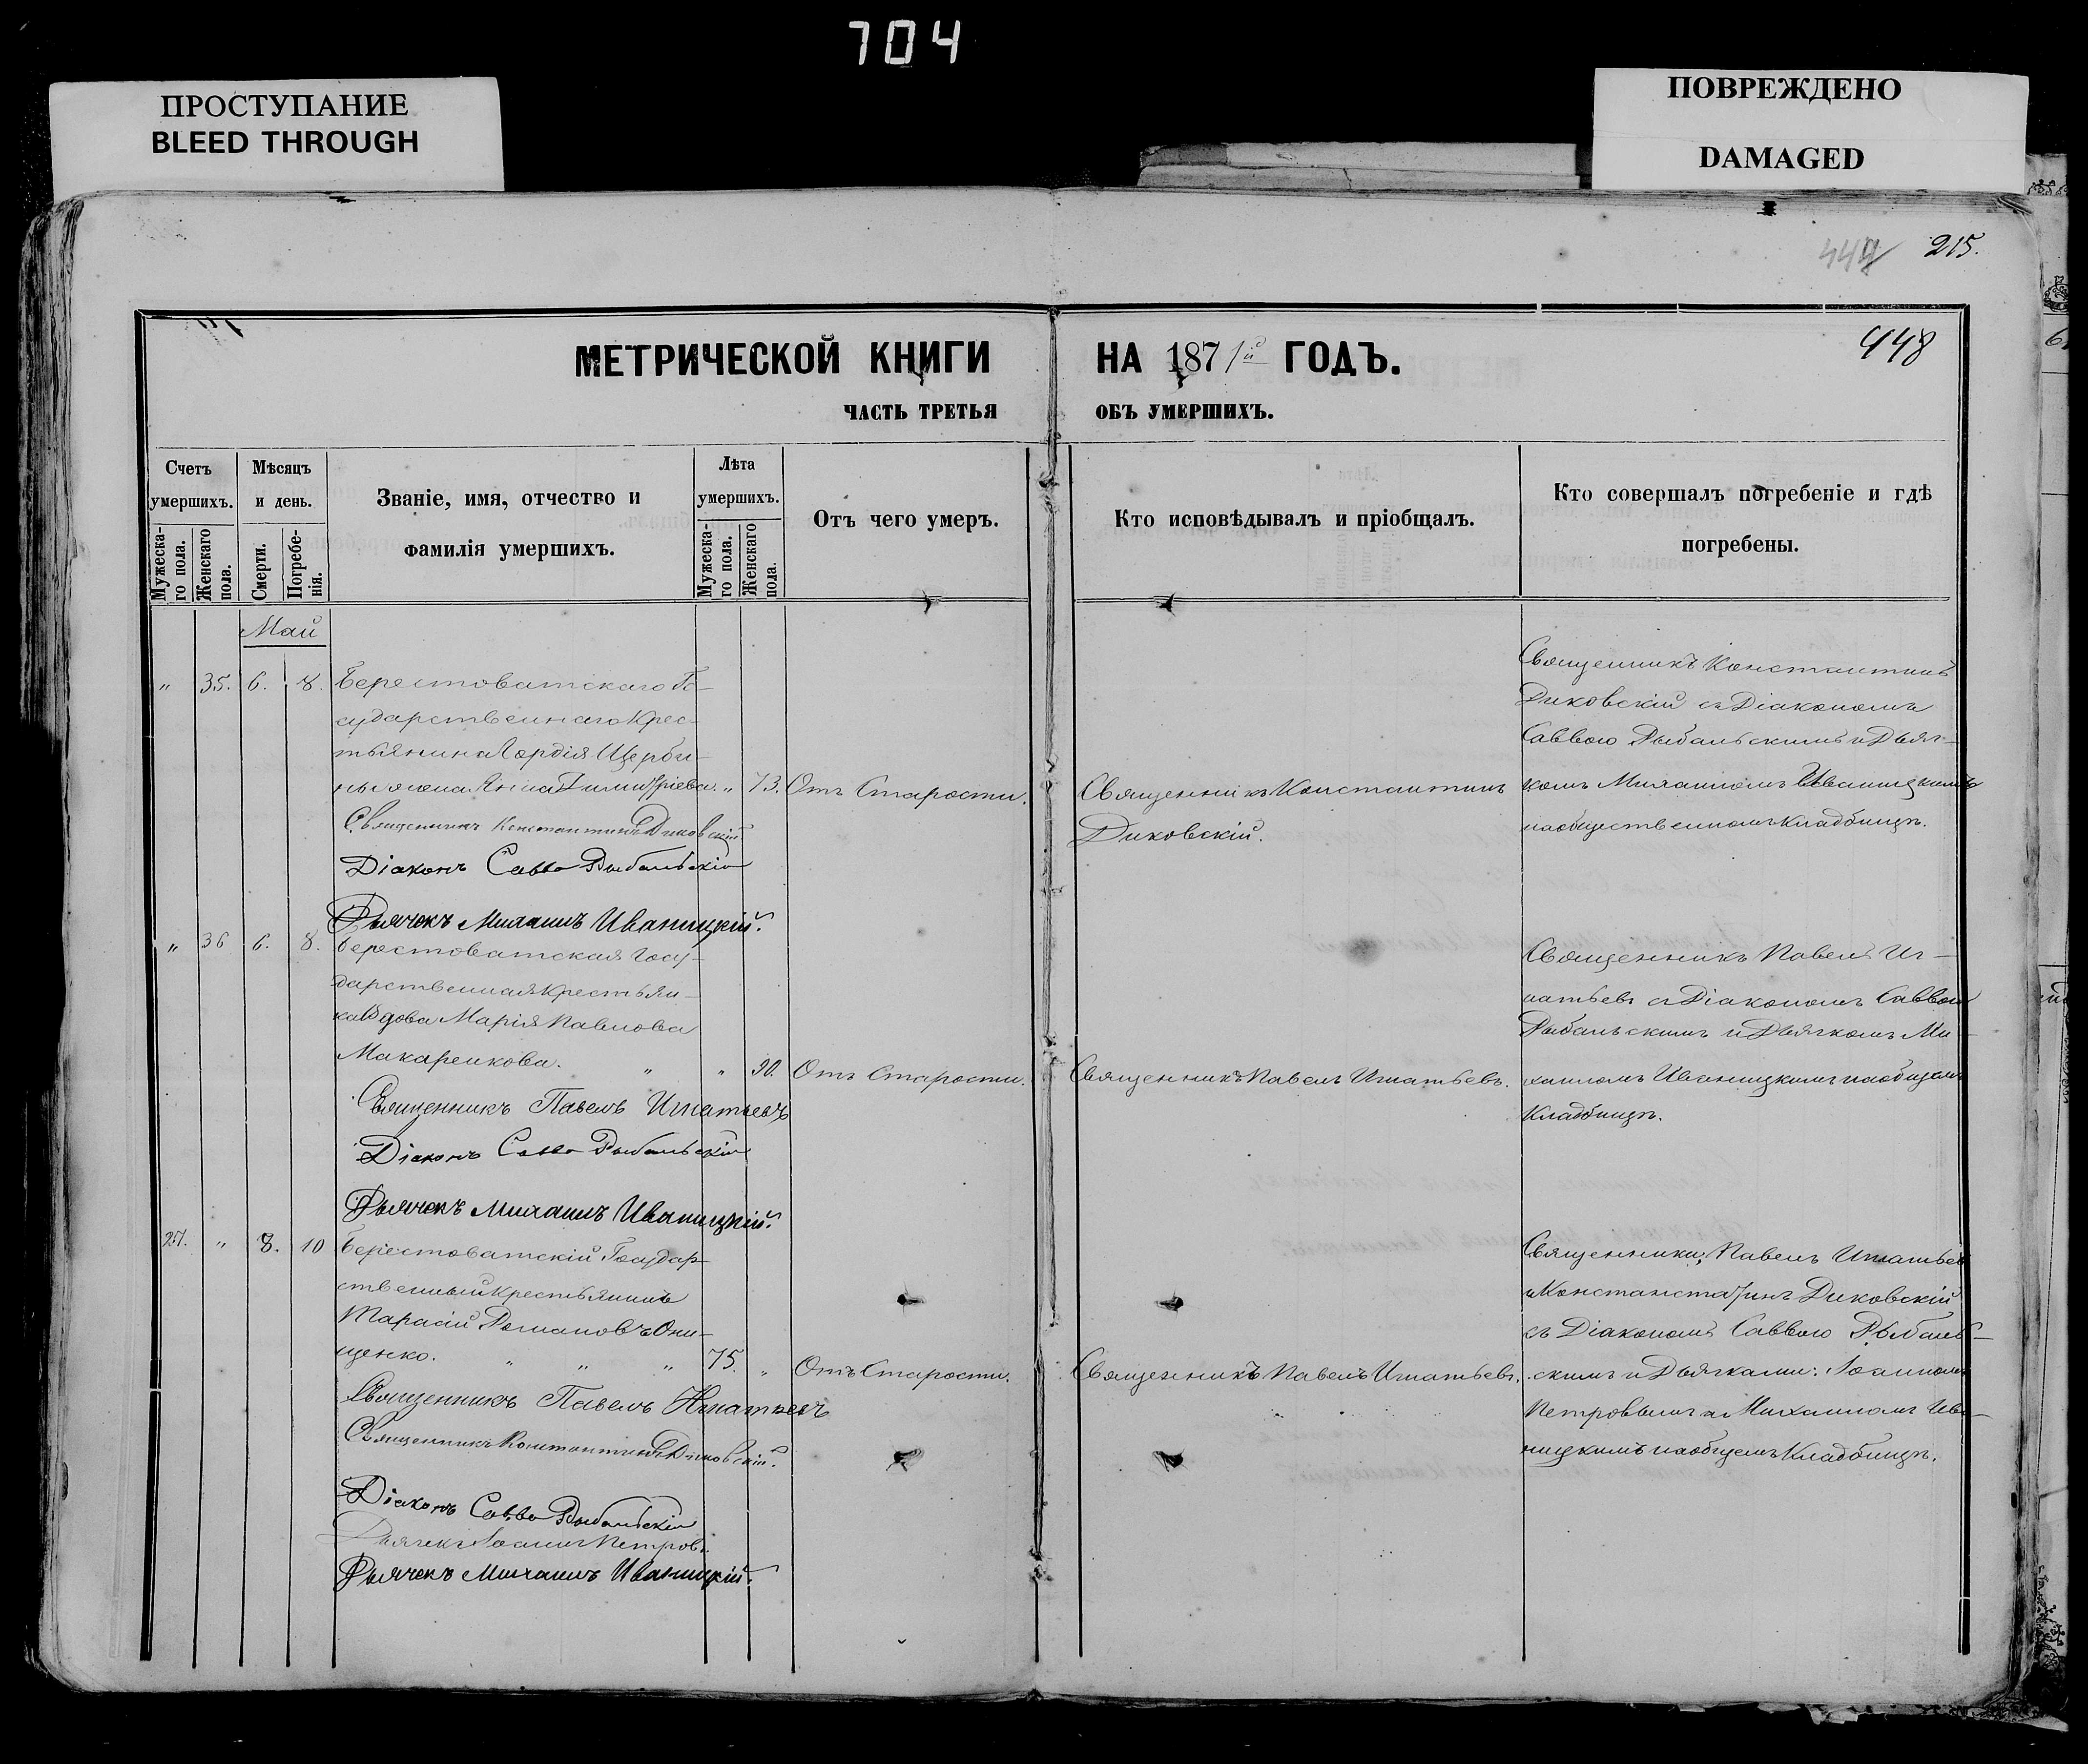 704
ПРОСТУПАНИЕ
BLEED THROUGH
ПОВРЕЖДЕНО
DAMAGED
215.
448
МЕТРИЧЕСКОЙ КНИГИ НА 1871й ГОДЪ.
ЧАСТЬ ТРЕТЬЯ ОБЪ УМЕРШИХЪ.
Счетъ умершихъ.
Мужеска-го пола.
Женскаго пола.
Мѣсяцъ и день.
Смерти.
Погребе-нія.
Званіе, имя, отчество и
фамилія умершихъ.
Лѣта умершихъ.
Мужеска-го пола.
Женскаго пола.
Отъ чего умеръ.
Кто исповѣдывалъ и пріобщалъ.
Кто совершалъ погребеніе и гдѣ
погребены.
Май
" 35. 6. 8. Берестоватскаго Го-
сударственнаго Крес-
тьянина Гордія Щерби-
ны жена Анна Димитріева. " 73. Отъ Старости.
Священникъ Константинъ Диковскій
Діаконъ Савва Рыбальскій
Дьячекъ Михаилъ Иваницкій.
Священникъ Константинъ
Диковскій.
Священникъ Константинъ
Диковскій съ Діакономъ
Саввою Рыбальскимъ и Дьяч-
комъ Михаиломъ Иваницкимъ
на общественномъ Кладбищѣ.
" 36 6. 8. Берестоватская Госу-
дарственная Крестьян-
ка Вдова Марія Павлова
Макаренкова. " " 90. Отъ Старости.
Священникъ Павелъ Игнатьевъ
Діаконъ Савва Рыбальскій
Дьячекъ Михаилъ Иваницкій.
Священникъ Павелъ Игнатьевъ.
Священникъ Павелъ Иг-
натьевъ съ Діакономъ Саввою
Рыбальскимъ и Дьячкомъ Ми-
хаиломъ Иваницкимъ на общемъ
Кладбищѣ.
" 8. 10 Берестоватскій Государ-
ственный Крестьянинъ
Тарасій Романовъ Они-
щенко. " " " 75. " Отъ Старости.
Священникъ Павелъ Игнатьевъ
Священникъ Константинъ Диковскій.
Діаконъ Савва Рыбальскій
Дьячекъ Іоаннъ Петровъ.
Дьячекъ Михаилъ Иваницкій.
Священникъ Павелъ Игнатьевъ.
Священники: Павелъ Игнатьевъ
и Константинъ Диковскій
съ Діакономъ Саввою Рыбаль-
скимъ и Дьячками: Іоанномъ
Петровымъ и Михаиломъ Ива-
ницкимъ на общемъ Кладбищѣ.